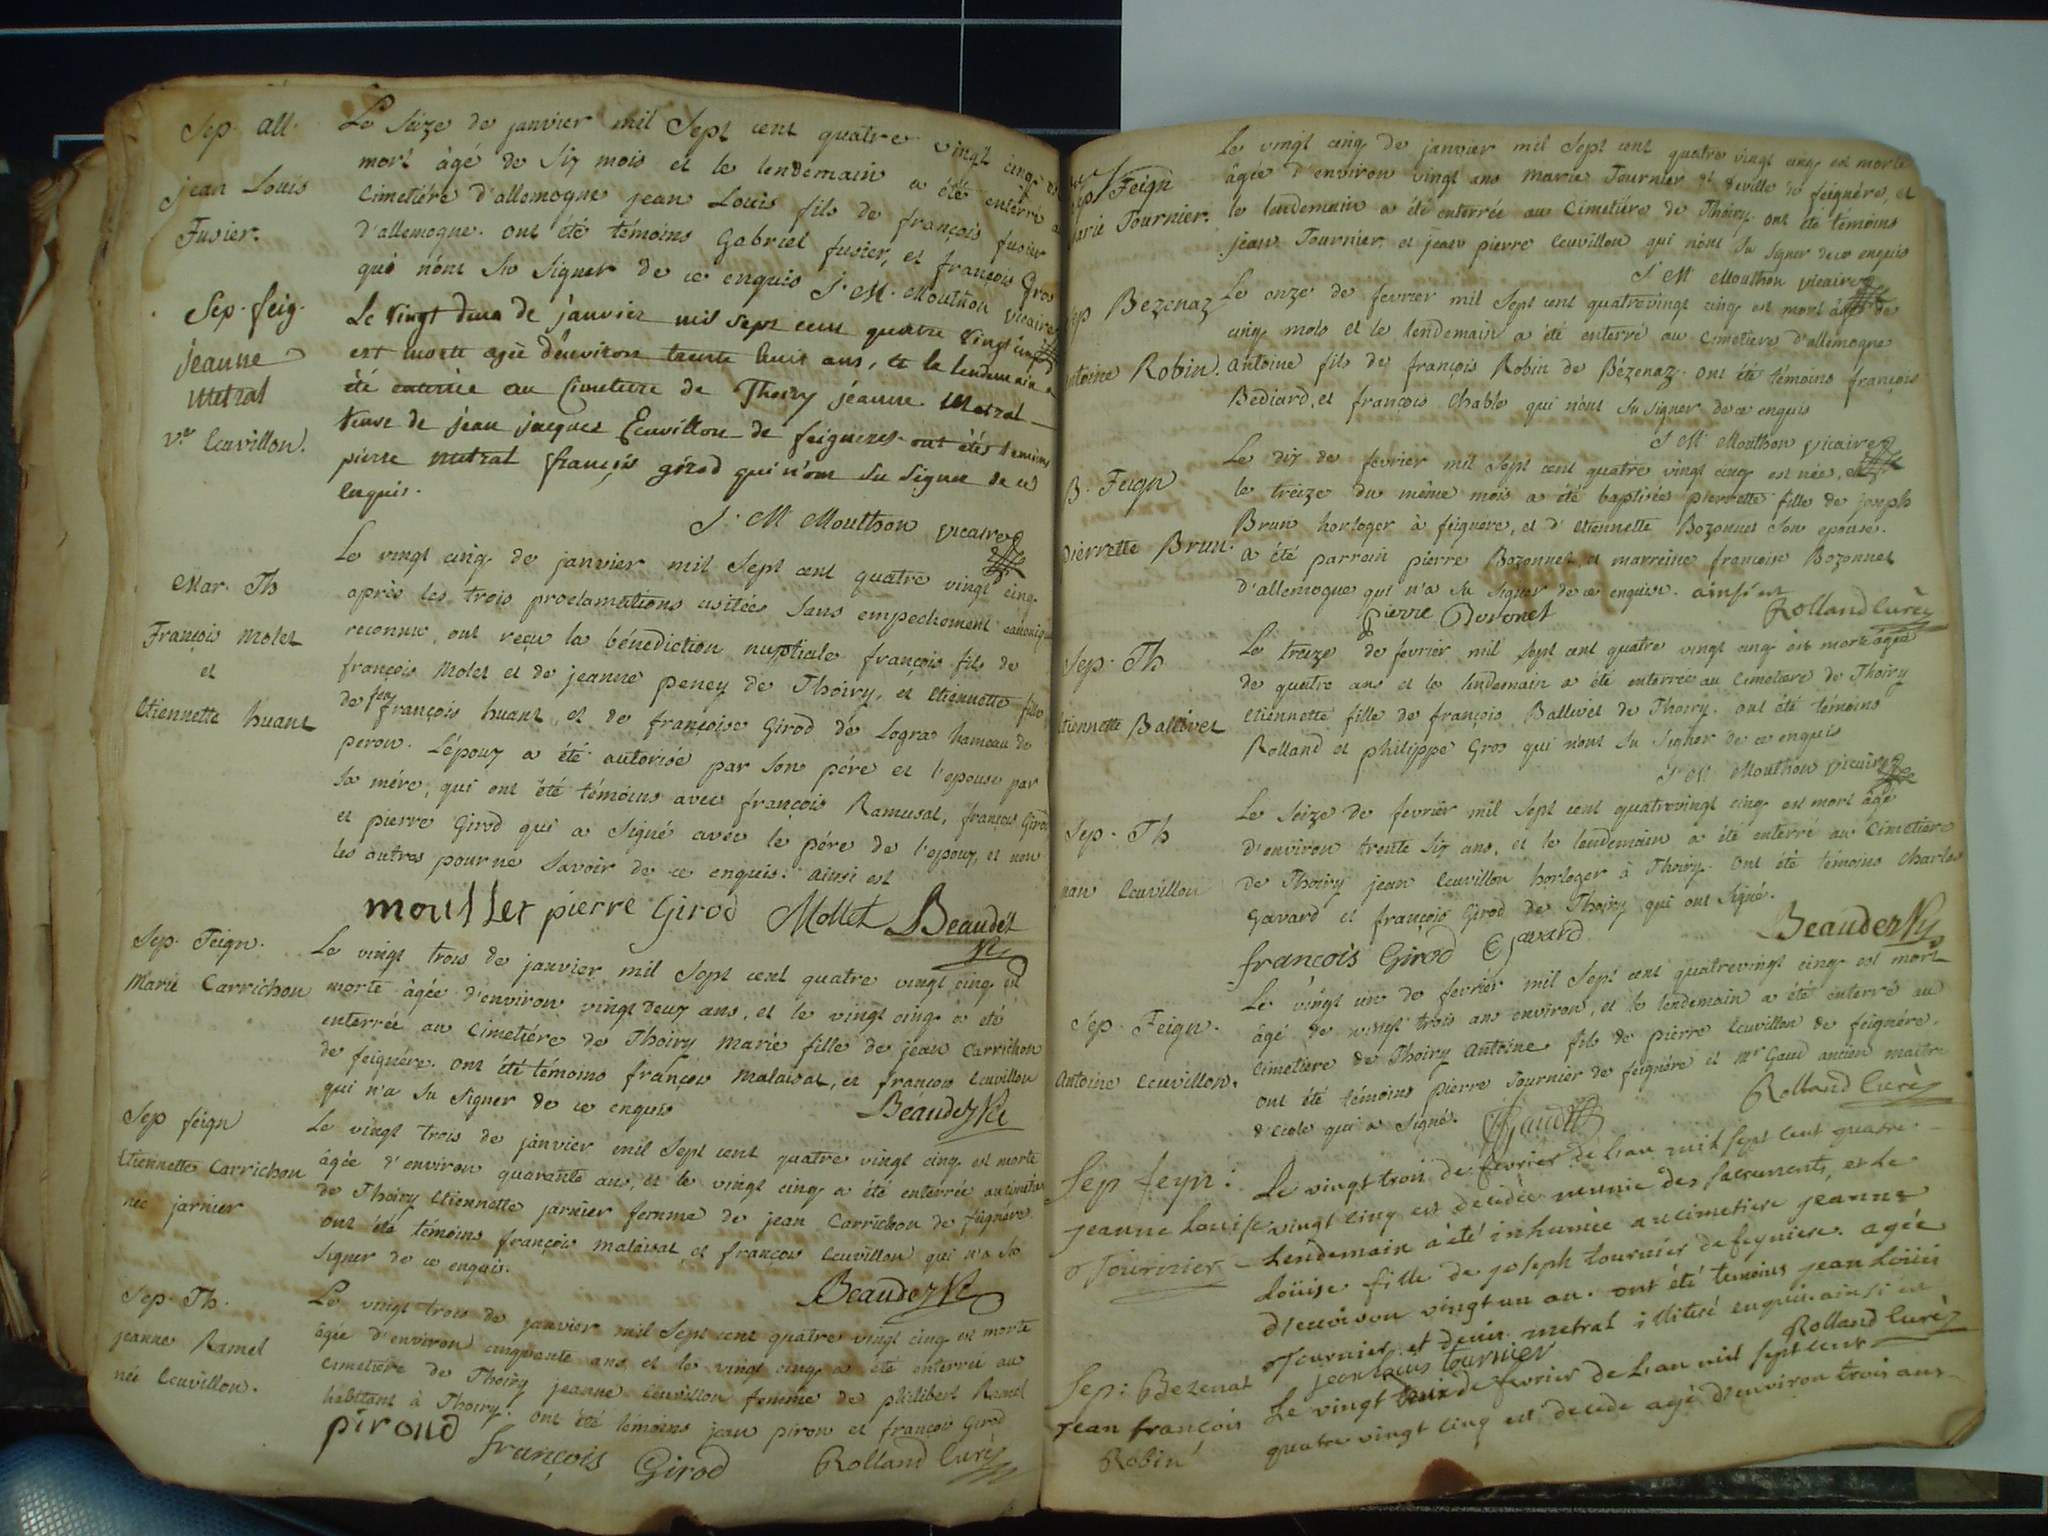 Sep. all.
jean Louis
Fusier.
Le seize de janvier mil sept cent quatre vingt cinq est
mort âgé de six mois et le lendemain a été enterré au
cimetiére d'allemogne jean Louis fils de françois fusier
d'allemogne. ont été témoins Gabriel fusier, et françois Gros
qui n'ont su signer de ce enquis J. M. Mouthon vicaire
Sep. feig.
jeanne
Metral
v.e Cuvillon.
Le vingt deux de janvier mil sept cent quatre vingt cinq
est morte agée d'environ trente huit ans, et le lendemain a
été enterrée au Cimetiere de Thoiry jéanne Metral
veuve de jean jacques Ecuvillon de feigneres ont étés temoins
pierre metral françois girod qui n'ont su signer de ce
enquis.
J. M Mouthon vicaire
Mar. Th
François Molet
et
Etiennette huant
Le vingt cinq de janvier mil sept cent quatre vingt cinq
après les trois proclamations usitées sans empechement canonique
reconnu, ont reçu la bénediction nuptiale françois fils de
françois Molet et de jeanne peney de Thoiry, et Etiennette fille
de feu françois huant et de françoise Girod de Logras hameau de
peron. L'époux a été autorisé par son pére et l'epouse par
sa mére, qui ont été témoins avec françois Ramusat, françois Girod
et pierre Girod qui a signé avec le pére de l'epoux, et non
les autres pour ne savoir de ce enquis. ainsi est
moullet pierre Girod Mollet Beaudet
Sep. Feign.
Marie Carrichon
Le vingt trois de janvier mil sept cent quatre vingt cinq est
morte âgée d'environ vingt deux ans, et le vingt cinq a été
enterrée au cimetiére de Thoiry Marie fille de jean Carrichon
de feignére. ont été témoins françois Malaisat, et françois Ecuvillon
qui n'a su signer de ce enquis
Sep feign
Etiennette Carrichon
née jarnier
Le vingt trois de janvier mil sept cent quatre vingt cinq est morte
âgée d'environ quarante ans, et le vingt cinq a été enterrée au cimetiére
de Thoiry Etiennette jarnier femme de jean Carrichon de feignére.
ont été témoins françois Malaisat et françois Ecuvillon qui n'a su
signer de ce enquis.
Sep. Th.
jeanne Ramel
née Ecuvillon.
Le vingt trois de janvier mil sept cent quatre vingt cinq est morte
âgée d'environ cinquante ans, et le vingt cinq a été enterrée au
cimetiere de Thoiry jeanne Ecuvillon femme de philibert Ramel
habitant à Thoiry. ont été témoins jean piron et françois Girod
pirond
françois Girod Rolland Curé
Sep Feign
Marie Tournier.
Le vingt cinq de janvier mil sept cent quatre vingt cinq est morte
âgée d'environ vingt ans Marie Tournier de feignére, et
le lendemain a été enterrée au cimetiére de Thoiry. ont été témoins
jean Tournier et jean pierre Ecuvillon qui n'ont su signer de ce enquis
J M Mouthon vicaire
Sep Bezenaz
Antoine Robin.
Le onze de fevrier mil sept cent quatrevingt cinq est mort âgé de
cinq mois et le lendemain a été enterré au cimetiere d'allemogne
Antoine fils de françois Robin de Bézenaz. ont été témoins françois
Bediard, et françois Chable qui n'ont su signer de ce enquis
J M Mouthon vicaire
B. Feign
pierrette Brun.
Le dix de fevrier mil sept cent quatre vingt cinq est née, et
le treize du même mois a été baptisée pierrette fille de joseph
Brun horloger à feignére, et d'Etiennette Bozonnet son epouse.
a été parrain pierre Bozonnet et marreine françoise Bozonnet
d'allemogne qui n'a su signer de ce enquise. ainsi est
pierre Rolland Curé
Sep. Th
Etiennette Ballivet
Le treize de février mil sept cent quatre vingt cinq est morte âgée
de quatre ans et le lendemain a été enterrée au cimetiere de Thoiry
Etiennette fille de françois Ballivet de Thoiry. ont été témoins
Rolland et philippe Gros qui n'ont su signer de ce enquis
J M Mouthon vicaire
Sep. Th
jean Ecuvillon
Le seize de fevrier mil sept cent quatrevingt cinq est mort âgé
d'environ trente six ans, et le lendemain a été enterré au cimetiere
de Thoiry jean Ecuvillon horloger à Thoiry. ont été témoins Charles
Gavard et françois Girod de Thoiry qui ont signé.
françois Girod C Gavard
Sep. Feign.
Antoine Ecuvillon.
Le vingt un de fevrier mil sept cent quatrevingt cinq est mort
âgé de vingt trois ans environ, et le lendemain a été enterré au
cimetiére de Thoiry Antoine fils de pierre Ecuvillon de feignére.
ont été témoins pierre Tournier de feignére et mr Gaud ancien maitre
d'école qui a signé. Gaud Rolland Curé
Sep feyn:
jeanne Louise
Tournier
Le vingt trois de fevrier de l'an mil sept cent quatre
vingt cinq est decédée munie des sacrements, et le
lendemain a été inhumée au cimetiere jeanne
Loüise fille de joseph tournier de feyniere. agée
d'environ vingt un an. ont été temoins jean Loüis
Tournier, et denis metral illitéré enquis. ainsi est
jean louis tournier Rolland Curé
Sep: Bezenat
jean françois
Robin
Le vingt trois de fevrier de l'an mil sept cent
quatre vingt cinq est decedé agé d'environ trois ans